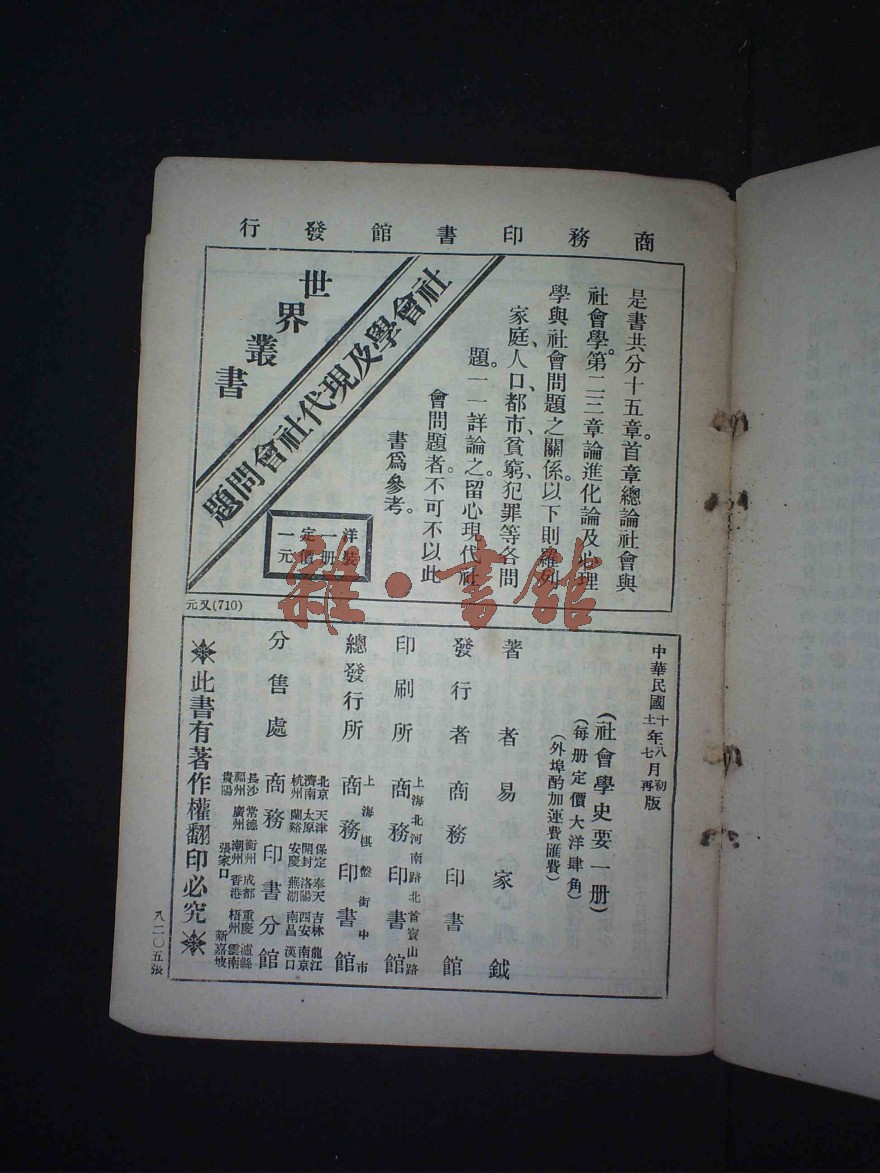 商務印書館發行
是書共分十五章。首章總論社會與
社會學。第二三章論進化論及心理
學與社會問題之關係。以下則羅列
家庭、人口、都市、貧窮、犯罪等各問
題。一一詳論之。留心現代社
會問題者。不可不以此
書爲參考。
社會學及現代社會問題
世界叢書
洋裝
一册
定價
一元
元又(710)
中華民國十年八月初版
十一年七月再版
(社會學史要一册)
(每册定價大洋肆角)
(外埠酌加運費匯費)
著者 易家鉞
發行者 商務印書館
上海北河南路北首寶山路
印刷所 商務印書館
上海棋盤街中市
總發行所 商務印書館
分售處 商務印書分館
北京 天津 保定 奉天 吉林 龍江
濟南 太原 開封 洛陽 西安 南京
杭州 蘭谿 安慶 蕪湖 南昌 漢口
長沙 常德 衡州 成都 重慶 瀘縣
福州 廣州 潮州 香港 梧州 雲南
貴陽 張家口 新嘉坡
此書有著作權翻印必究
八二〇五張
雜·書館